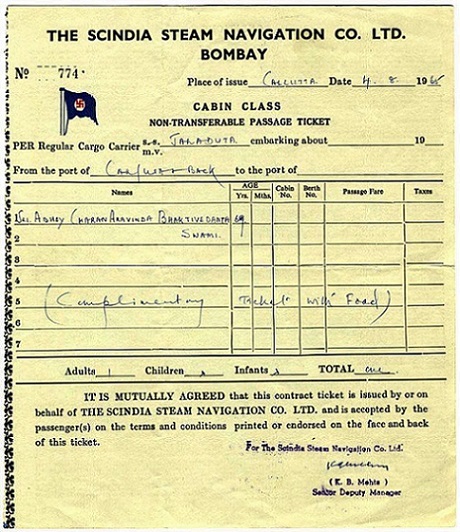 THE SCINDIA STEAM NAVIGATION CO. LTD.
BOMBAY
Nº 774
Place of issue CALCUTTA Date 4.8.1965
CABIN CLASS
NON-TRANSFERABLE PASSAGE TICKET
PER Regular Cargo Carrier s.s. m.v. JALADUTA embarking about 19
From the port of Cal/ Back to the port of
Names AGE Yrs. Mths. Cabin No. Berth No. Passage Fare Taxes
1 ABHOY CHARAN ARAVINDA BHAKTIVEDANTA 69
2 SWAMI.
3
4
5 (Complimentary Ticket with Food)
6
7
Adults 1 Children x Infants x TOTAL one
IT IS MUTUALLY AGREED that this contract ticket is issued by or on
behalf of THE SCINDIA STEAM NAVIGATION CO. LTD. and is accepted by the
passenger(s) on the terms and conditions printed or endorsed on the face and back
of this ticket.
For The Scindia Steam Navigation Co. Ltd.
(K. B. Mehta)
Senior Deputy Manager